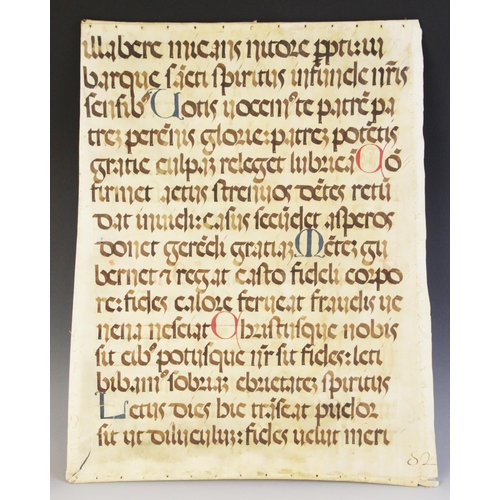 illabere micans nitore ꝑpti: iu
barque sācti spiritus infunde nr̄is
sensibꝰ Uotis uocemꝰ te patrē pa
treꝫ perēnis glorie: patreꝫ potētis
gratie culpaꝫ releget lubricā Cō
firmet actus strenuos dētes retū
dat inuidi: casus secūdet asperos
donet gerēdi gratiaꝫ Mēteꝫ gu
bernet ⁊ regat casto fideli corpo
re: fides calore ferueat fraudis ue
nena nesciat Christusque nobis
sit cibꝰ potusque nr̄ sit fides: leti
bibamꝰ sobriaꝫ ebrietateꝫ spiritus
Letus dies hic trāseat pudor
sit ut diluculuꝫ: fides uelut meri
82